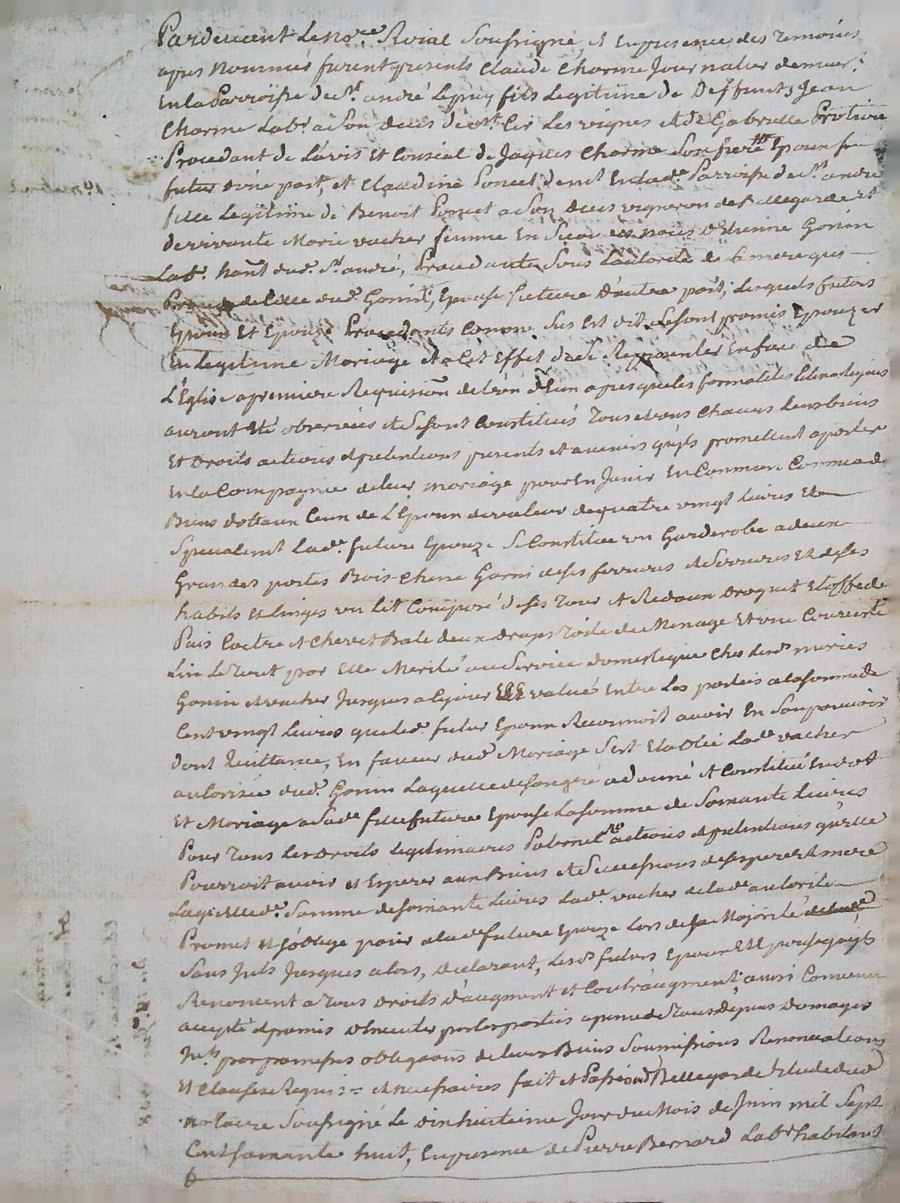 Pardevant Le no.re Roial Soussigné, et En presence des Temoins
apres Nommés furent presents Claude Charme Journalier demeur.t
En la Parroisse de S.t andré Le puy fils Legitime de Deffunts Jean
Charme Lab.r a Son deces de S.t Cir Les vignes et de Gabrielle
Procedant de L'avis et Conseil de Jaques Charme Son frere Epoux
futur d'une part, et Claudine Poncet dem.t En lad.e Parroisse de S.t andré
fille Legitime de Benoit Poncet a Son deces vigneron de Bellegarde et
de vivante Marie vacher femme En Secondes noces d'Etienne Gonin
Lab.r hant dud. S.t andré, Procedante Sous L'autorité de Sa mere qui
de Celle dud.t Gonin, Epouse future D'autre part, Lesquels futurs
Epoux Et Epouze Procedants Comme Sus est dit se sont promis Epouzer
En Legitime Mariage et a Cet Effet de se Representer En face de
L'Eglise a premiere Requisition de L'un d'Eux apres que les formalités
auront Eté observées et se sont Constitués Tous et uns Chacuns Leurs biens
Et Droits actions et pretentions presents et avenirs qu'ils promettent aporter
En la Compagnie de leur mariage pour En Jouir En Commun Comme de
Biens dotaux Ceux de L'Epoux de valeur de quatre vingt livres Et
Specialement Lad.e future Epouze Se Constitue un Garderobe a deux
Grandes portes Bois Chene Garni de ses ferrures et Serrures Et de ses
habits et Linges un Lit Composé de ses Tour et Rideaux Droguet Etoffe de
Pais Coetre et Chevet Bale deux draps Toile de Menage Et une Couverte
Le Tout par Elle Merité au Service domestique Chés Lesd.s mariés
Gonin et vacher Jusques a Ce jour Evalué Entre Les parties a la somme de
Cent vingt Livres que led. futur Epoux Reconnoit avoir En Son pouvoir
dont Quittance, En faveur dud.t Mariage S'est Etablie Lad.e vacher
autorisée dud.t Gonin Laquelle de son gré a donné et Constitué En dot
Et Mariage a Sad.e fille future Epouse La somme de Soixante Livres
Pour Tous Les Droits Legitimaires Paternels actions et pretentions qu'elle
Pourroit avoir et Esperer aux Biens et Successions de ses pere et mere
Laquelle d.e Somme de soixante Livres Lad.e vacher de lad.e autorité
Promet et s'oblige paier a lad.e future Epouze Lors de sa Majorité
Sans Jnts Jusques alors, declarant, Lesd.s futurs Epoux Et Epouse qu'ils
Renoncent a Tous Droits D'augment et Contraugment ainsi Convenu
accepté et promis Executer par Les parties a peine de Tous depens Domages
Jnts par promesses obligations de leurs Biens Soumissions Renonciations
Et Clauses Requises et necessaires fait et Passé aud. Bellegarde Etude dud.
notaire Soussigné Le dixhuitieme Jour du Mois de Juin mil Sept
Cent soixante huit, En presence de Pierre Bernard Lab.r habitant